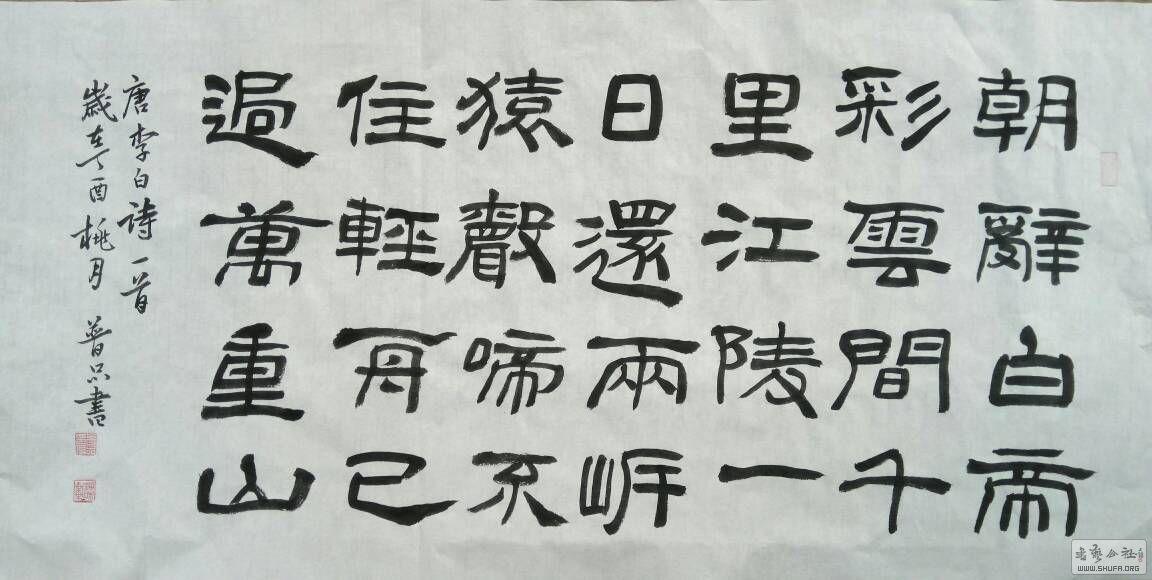 朝辭白帝
彩雲間千
里江陵一
日還兩岍
猿聲啼不
住輕舟已
過萬重山
唐李白詩一首
歲在丁酉桃月 普只書
书艺公社
WWW.SHUFA.ORG